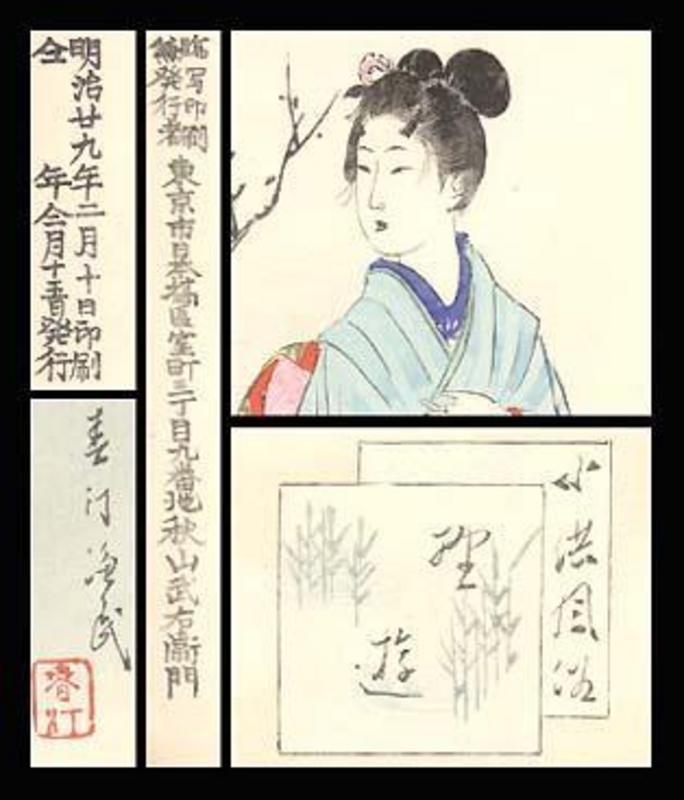 明治廿九年二月十日印刷
仝　年仝月十五日発行
臨写印刷
兼発行者
東京市日本橋區室町三丁目九番地秋山武右衛門
小供風俗
野遊
春汀
春汀